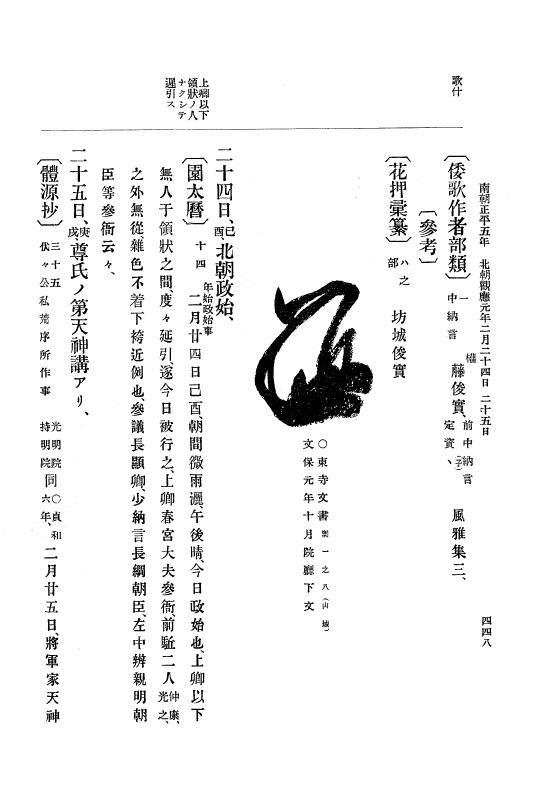 南朝正平五年 北朝觀應元年二月二十四日 二十五日
四四八
歌什
〔倭歌作者部類〕一 中納言 權 藤俊實、前中納言定資、(子) 風雅集三、
〔參考〕
〔花押彙纂〕ハ之部 坊城俊實
○東寺文書 之八(山城)
文保元年十月院廳下文
上卿以下
領狀ノ人
ナクシテ
遲引ス
二十四日、己酉北朝政始、
〔園太曆〕十四 年始政始事 二月廿四日己酉、朝間微雨灑、午後晴、今日政始也、上卿以下
無人于領狀之間、度々延引、遂今日被行之、上卿春宮大夫參衙、前駈二人仲康、光之、
之外無從雜色不着下袴近例也、參議長顯卿、少納言長綱朝臣、左中辨親明朝
臣等參衙云々、
二十五日、庚戌尊氏ノ第天神講アリ、
〔體源抄〕三十五 伏々公私荒序所作事 光明院○貞和 持明院同六年、二月廿五日、將軍家天神